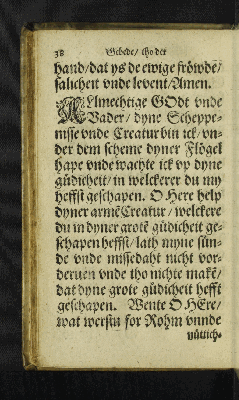 38 Gebede / tho der
hand / dat ys de ewige fröwde /
salicheit vnde levent / Amen.
ALlmechtige GOdt vnde
Vader / dyne Scheppe-
nisse vnde Creatur bin ick / vn-
der dem scheme dyner Flögel
hape vnde wachte ick vp dyne
güdicheit / in welckerer du my
heffst geschapen. O Here help
dyner armē Creatur / welckere
du in dyner grotē güdicheit ge-
schapen heffst / lath myne sün-
de vnde missedaht nicht vor-
deruen vnde tho nichte makē /
dat dyne grote güdicheit hefft
geschapen. Wente O HEre /
wat werstu for Rohm vnnde
nüttich-